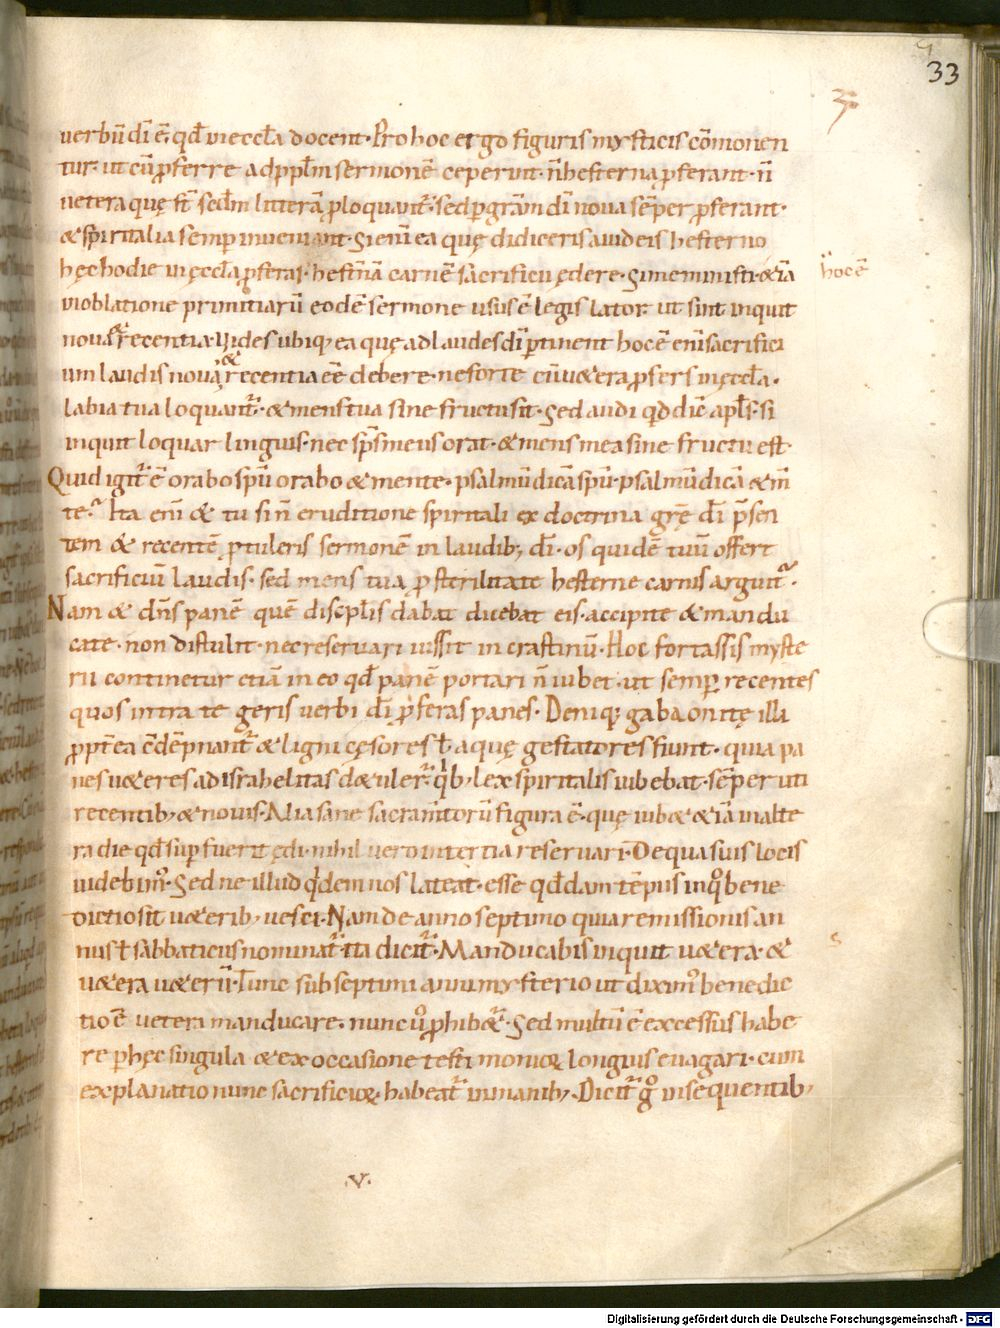 33
uerbū dī ē. qđ in eccła docent. Pro hoc ergo figuris mysticis cōmonen
tur. ut cū ꝓferre ad ppłm sermonē ceperint. n̄ hesterna ꝓferant. n̄
uetera quę st̄ sedm litterā ꝓloquant̄. sed ꝑ grām dī noua sēper ꝓferant.
& spiritalia semꝑ inueniant. Si eni ea quę didiceris a iudeis hesterno
hęc hodie in ęccła ꝓferas. hest̄nā carnē sacrificii ędere. Si meministi & iā
hoc ē
in oblatione primitiarū eodē sermone usus ē legis lator. ut sint inquit
noua & recentia. Uides ubiq; ea quę ad laudes dī ꝑtinent hoc ē eni sacrifici
um laudis noua & recentia eē debere. ne forte cū u&era ꝓfers in ęccła.
labia tua loquant̄. & mens tua sine fructu sit. Sed audi qđ dic̄ apłs. si
inquit loquar linguis. nec sp̄s meus orat. & mens mea sine fructu est.
Quid igit̄ ē orabo spū orabo & mente. psalmū dicā spū. psalmū dicā & m̄
te. Ita eni & tu si n̄ eruditione spiritali ex doctrina grę̄ dī p̄sen
tem & recentē ꝓtuleris sermonē in laudib; dī. os quidē tuū offert
sacrificiū laudis. sed mens tua ꝓ sterilitate hesterne carnis arguit̄.
Nam & dn̄s panē quē discipłis dabat dicebat eis. accipite & mandu
cate. non distulit. nec reseruari iussit in crastinū. Hoc fortassis myste
rii continetur etiā in eo qđ panē portari n̄ iubet. ut semꝑ recentes
quos intra te geris uerbi dī ꝓferas panes. Deniq; gabaonitę illi
ꝓpt̄ea cōdēpnant̄ & ligni cęsores ł aquę gestatores fiunt. quia pa
nes u&eres ad israhelitas d&uler̄. qb; lex spiritalis iubebat. sēper uti
recentib; & nouis. Alia sane sacramtorū figura ē. quę iub& & iā in alte
ra die qđ supfuerit ędi. nihil uero in tertia reseruari. De qua suis locis
uidebim̄. Sed ne illud qdem nos lateat. esse qđdam tēpus in qo bene
dictio sit u&erib; uesci. Nam de anno septimo qui a remissionis an
nus ł sabbaticus nominat̄ ita dicit̄. Manducabis inquit u&era. &
u&era u&erū. Tunc sub septimi anni mysterio ut dixim̄ benedic
tio ē uetera manducare. nunc uo ꝓhib&̄. Sed multū ē excessus habe
re ꝑ hęc singula & ex occasione testimonioꝝ longius euagari. cum
explanatio nunc sacrificioꝝ habeat̄ in manib;. Dicit̄ go in sequentib;
.v.
Digitalisierung gefördert durch die Deutsche Forschungsgemeinschaft - DFG